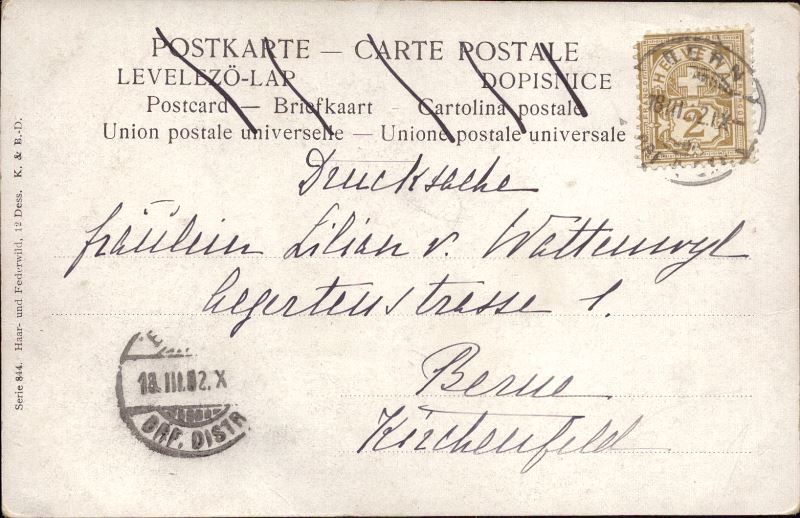 POSTKARTE — CARTE POSTALE
LEVELEZÖ-LAP DOPISNICE
Postcard — Briefkaart — Cartolina postale
Union postale universelle — Unione postale universale
HELVETIA
2
BERN
18.III.02.IX
Drucksache
Fräulein Lilian v. Wattenwyl
Aegertenstrasse 1.
Berne
Kirchenfeld
18.III.02.X
BRF. DISTR
Serie 844. Haar- und Federwild, 12 Dess. K. & B.-D.